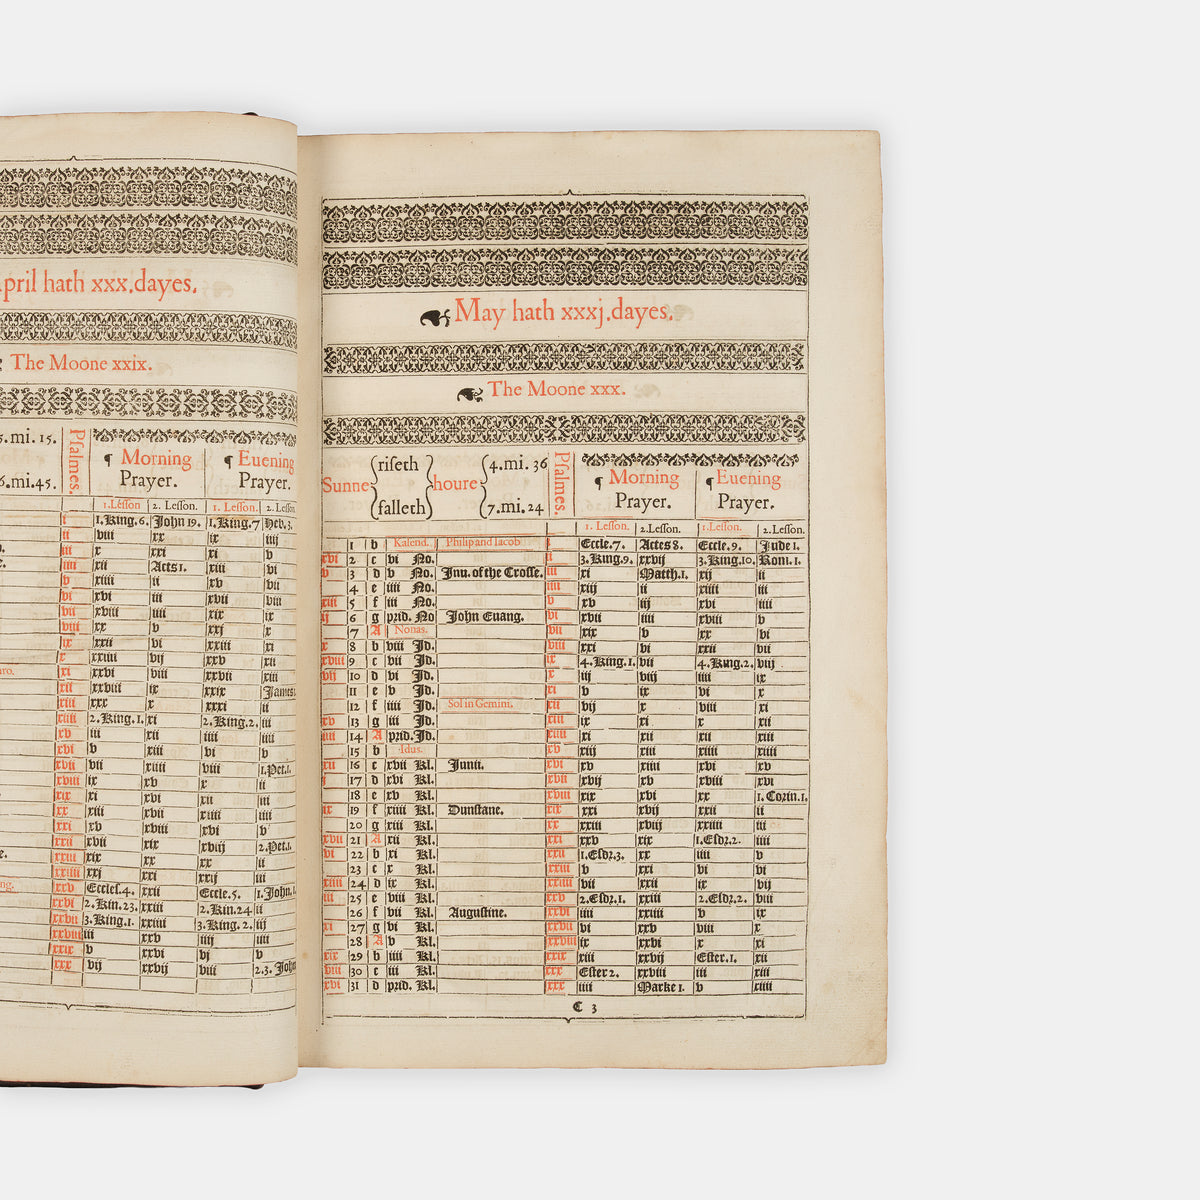 pril hath xxx.dayes.
The Moone xxix.
.mi. 15.
.mi.45.
Pſalmes.
¶ Morning Prayer.
¶ Euening Prayer.
1.Leſſon 2. Leſſon. 1. Leſſon. 2.Leſſon.
i 1.King.6. John 19. 1.King.7 Heb.3.
ii viii xx ix iiij
iii x xxi xi v
iiii xii Actes 1. xiii vi
v xiiii ii xv vii
vi xvi iii xvii viii
vii xviii iiii xix ix
viii xx v xxj x
ix xxii vi xxiii xi
x xxiiii vij xxv xii
xi xxvi viii xxvii xiii
xii xxviii ix xxix James
xiii xxx x xxxi ii
xiiii 2.King.1. xi 2.King.2. iii
xv iii xii iiii iiii
xvi v xiii vi v
xvii vii xiiii viii 1.Pet.1.
xviii ix xv x ii
xix xi xvi xii iii
xx xiii xvii xiiii iiii
xxi xv xviii xvi v
xxii xvii xix xviij 2.Pet.1.
xxiii xix xx xx ii
xxiiii xxj xxi xxij iii
xxv Eccleſ.4. xxii Eccle.5. 1.John.1.
xxvi 2.Kin.23. xxiii 2.Kin.24 ii
xxvii 3.King.1. xxiiii 3.King.2. iij
xxviii iii xxv iiij iiii
xxix v xxvi vj v
xxx vij xxvij viii 2.3. John
May hath xxxj.dayes.
The Moone xxx.
Sunne riſeth falleth houre 4.mi. 36 7.mi. 24
Pſalmes.
¶ Morning Prayer.
¶ Euening Prayer.
1. Leſſon. 2.Leſſon. 1.Leſſon. 2.Leſſon.
1 b Kalend. Philip and Iacob i Eccle.7. Actes 8. Eccle.9. Jude 1.
xvi 2 c vi No. ii 3.King.9. xxvij 3.King.10. Rom.1.
v 3 d v No. Inu.of the Croſſe. iii xi Matth.1. xij ii
4 e iiii No. iiii xiij ii xiiii iii
xiii 5 f iii No. v xv iij xvi iiii
ij 6 g prid. No John Euang. vi xvii iiii xviii v
7 A Nonas. vii xix v xx vi
x 8 b viii Jd. viii xxi vi xxii vii
xviii 9 c vii Jd. ix 4.King.1. vii 4.King.2. viij
vij 10 d vi Jd. x iij viij iiii ix
11 e v Jd. xi v ix vi x
12 f iiii Jd. Sol in Gemini. xii vij x viii xi
xv 13 g iii Jd. xiii ix xi x xii
iiii 14 A prid.Jd. xiiii xi xii xii xiii
15 b Idus. xv xiij xiii xiiii xiiii
xii 16 c xvii Kl. Junii. xvi xv xiiii xvi xv
j 17 d xvi Kl. xvii xvij xv xviii xvi
18 e xv Kl. xviii xix xvi xx 1. Corin.1.
ix 19 f xiiii Kl. Dunſtane. xix xxi xvij xxii ii
20 g xiii Kl. xx xxiii xviij xxiiii iii
xvii 21 A xii Kl. xxi xxv xix 1.Eſdr.2. iiii
vi 22 b xi Kl. xxii 1.Eſdr.3. xx iiii v
23 c x Kl. xxiii v xxi vi vi
xiiii 24 d ix Kl. xxiiii vii xxii ix vij
iii 25 e viii Kl. xxv 2.Eſdr.1. xxiii 2.Eſdr.2. viii
26 f vii Kl. Auguſtine. xxvi iiii xxiiii v ix
xi 27 g vi Kl. xxvii vi xxv viii x
28 A v Kl. xxviii ix xxvi x xi
xix 29 b iiii Kl. xxix xiii xxvij Eſter.1. xii
viii 30 c iii Kl. xxx Eſter 2. xxviii iii xiii
xvi 31 d prid. Kl. xxx iiii Marke 1. v xiiii
C 3